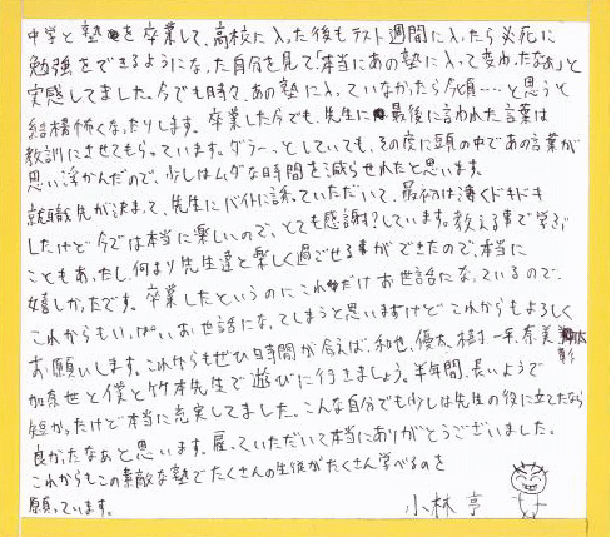 中学と塾を卒業して、高校に入った後もテスト週間に入ったら必死に
勉強をできるようになった自分を見て「本当にあの塾に入って変わったなぁ」と
実感してました。今でも時々、あの塾に入っていなかったら今頃……と思うと
結構怖くなったりします。卒業した今でも、先生に最後に言われた言葉は
教訓にさせてもらっています。ダラーっとしていても、その度に頭の中であの言葉が
思い浮かんだので、少しはムダな時間を減らせれたと思います。
就職先が決まって、先生にバイトに誘っていただいて、最初は凄くドキドキ
したけど今では本当に楽しいので、とても感謝?しています。教える事で学ぶ
こともあったし、何より先生達と楽しく過ごせる事ができたので、本当に
嬉しかったです。卒業したというのにこれだけお世話になっているので、
これからもいっぱいお世話になってしまうと思いますけどこれからもよろしく
お願いします。これからもぜひ日時間が合えば、和也、優太、樹、一平、奈美
加奈世と僕と竹本先生で遊びに行きましょう。半年間、長いようで
短かったけど本当に充実してました。こんな自分でも少しは先生の役に立てたなら
良かったなぁと思います。雇っていただいて本当にありがとうございました。
これからもこの素敵な塾でたくさんの生徒がたくさん学べるのを
願っています。
小林 亨